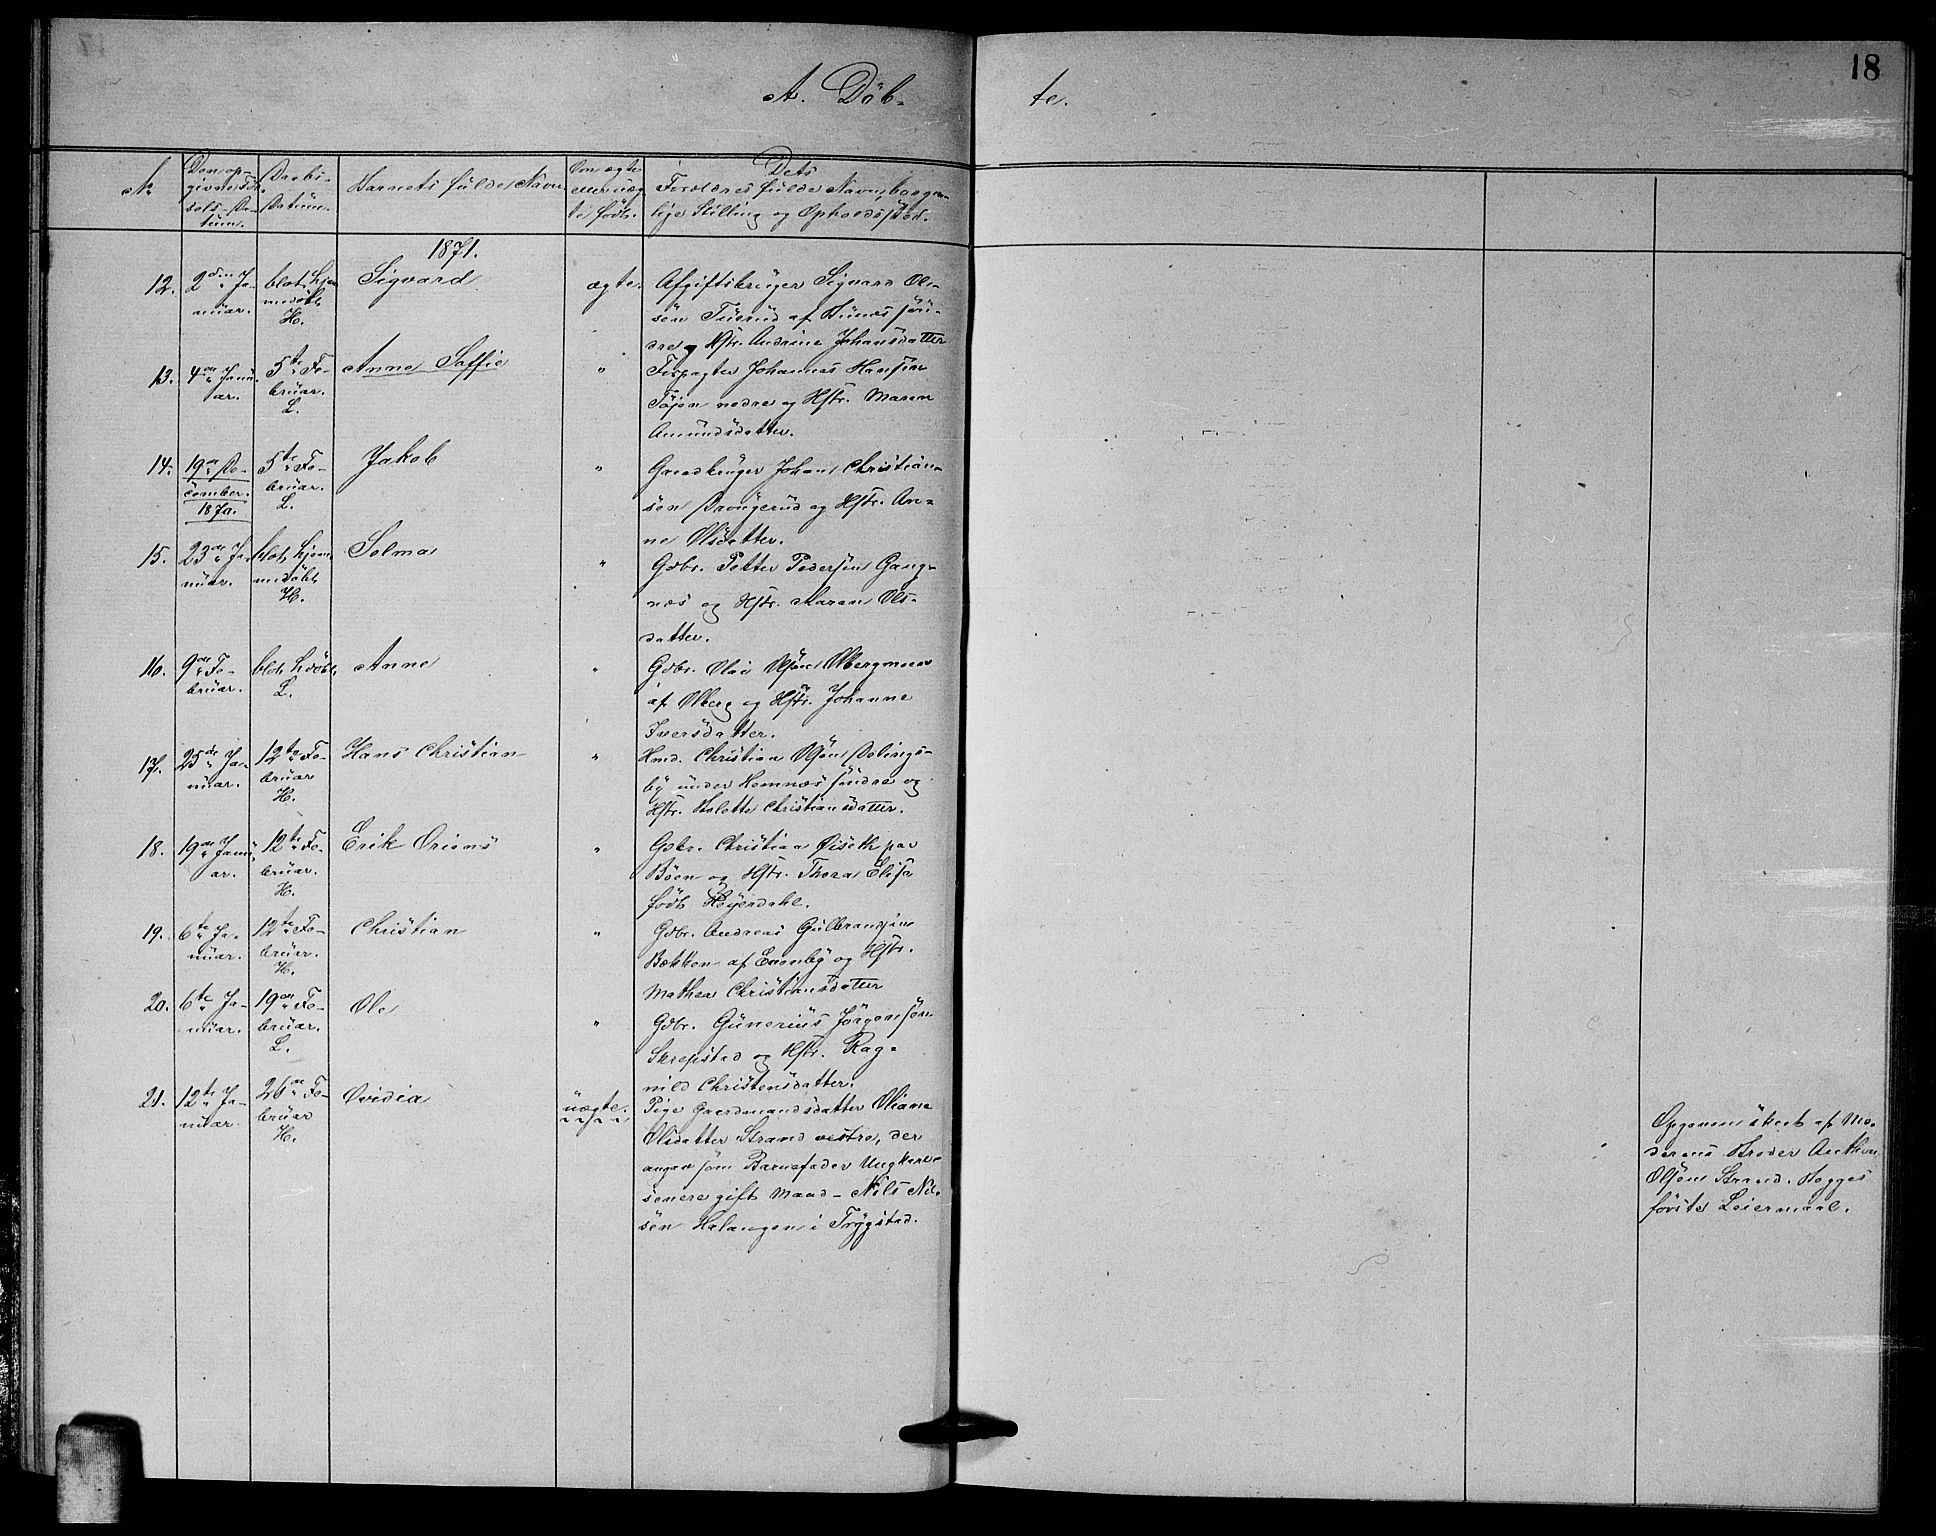 18
A. Döb-
te.
No
Den op-
givne Föd-
sels-Da-
tum.
Daabs-
Datum.
Barnets fulde Navn.
Om ægte
eller uæg-
te födt.
Dets
Forældres fulde Navn, borger-
lige Stilling og Opholdssted.
1871.
12. 2den Ja-
nuar.
blot hjem-
medöbt
H.
Sigvard
ægte.
Afgiftsbruger Sigvard Ol-
sen Tuerud af söndre
og Hstr. Andrine Johansdatter
13. 4de Janu-
ar.
5te Fe-
bruar.
L.
Anne Saffie
"
Forpagter Johannes Hansen
Töien nedre og Hstr. Maren
Amundsdatter.
14. 19de De-
cember.
1870.
5te Fe-
bruar.
L.
Jakob
"
Gaardbruger Johan Christian-
sen og Hstr. An-
ne Olsdatter.
15. 23de Ja-
nuar.
blot hjem-
medöbt
H.
Selma
"
Gdbr. Petter Pedersen Gang-
næs og Hstr. Maren Ols-
datter.
16. 9de Fe-
bruar.
blot hdöbt.
L.
Anne
"
Gdbr. Olai Olsen
af Olberg og Hstr. Johanne
Iversdatter.
17. 25de Ja-
nuar.
12te Fe-
bruar
H.
Hans Christian
"
Hmd. Christian Olsen Delings-
by under Hemnæs söndre og
Hstr. Christiansdatter.
18. 19de Janu-
ar.
12te Fe-
bruar.
H.
Erik Oriens
"
Gdbr. Christian Öiseth paa
Böen og Hstr. Thora Elise
födt Heyerdahl.
19. 6te Ja-
nuar.
12te Fe-
bruar.
H.
Christian
"
Gdbr. Andreas Gulbransen
Bækken af Evenby og Hstr.
Mathea Christiansdatter
20. 6te Ja-
nuar.
19de Fe-
bruar.
L.
Ole
"
Gdbr. Gunerius Jörgensen
Skrepstad og Hstr. Rag-
nild Christensdatter.
21. 12te Ja-
nuar.
26de Fe-
bruar
H.
Ovidia
uægte.
Pige Gaardmandsdatter Oliane
Olsdatter Strand vestre, der
angav som Barnefader Ungkarl-
senere gift Mand - Nils Nil-
sen Halangen i Trygstad.
Opgaven sket af Mo-
derens Broder Anthon
Olsen Strand. Begges
förste Leiermaal.